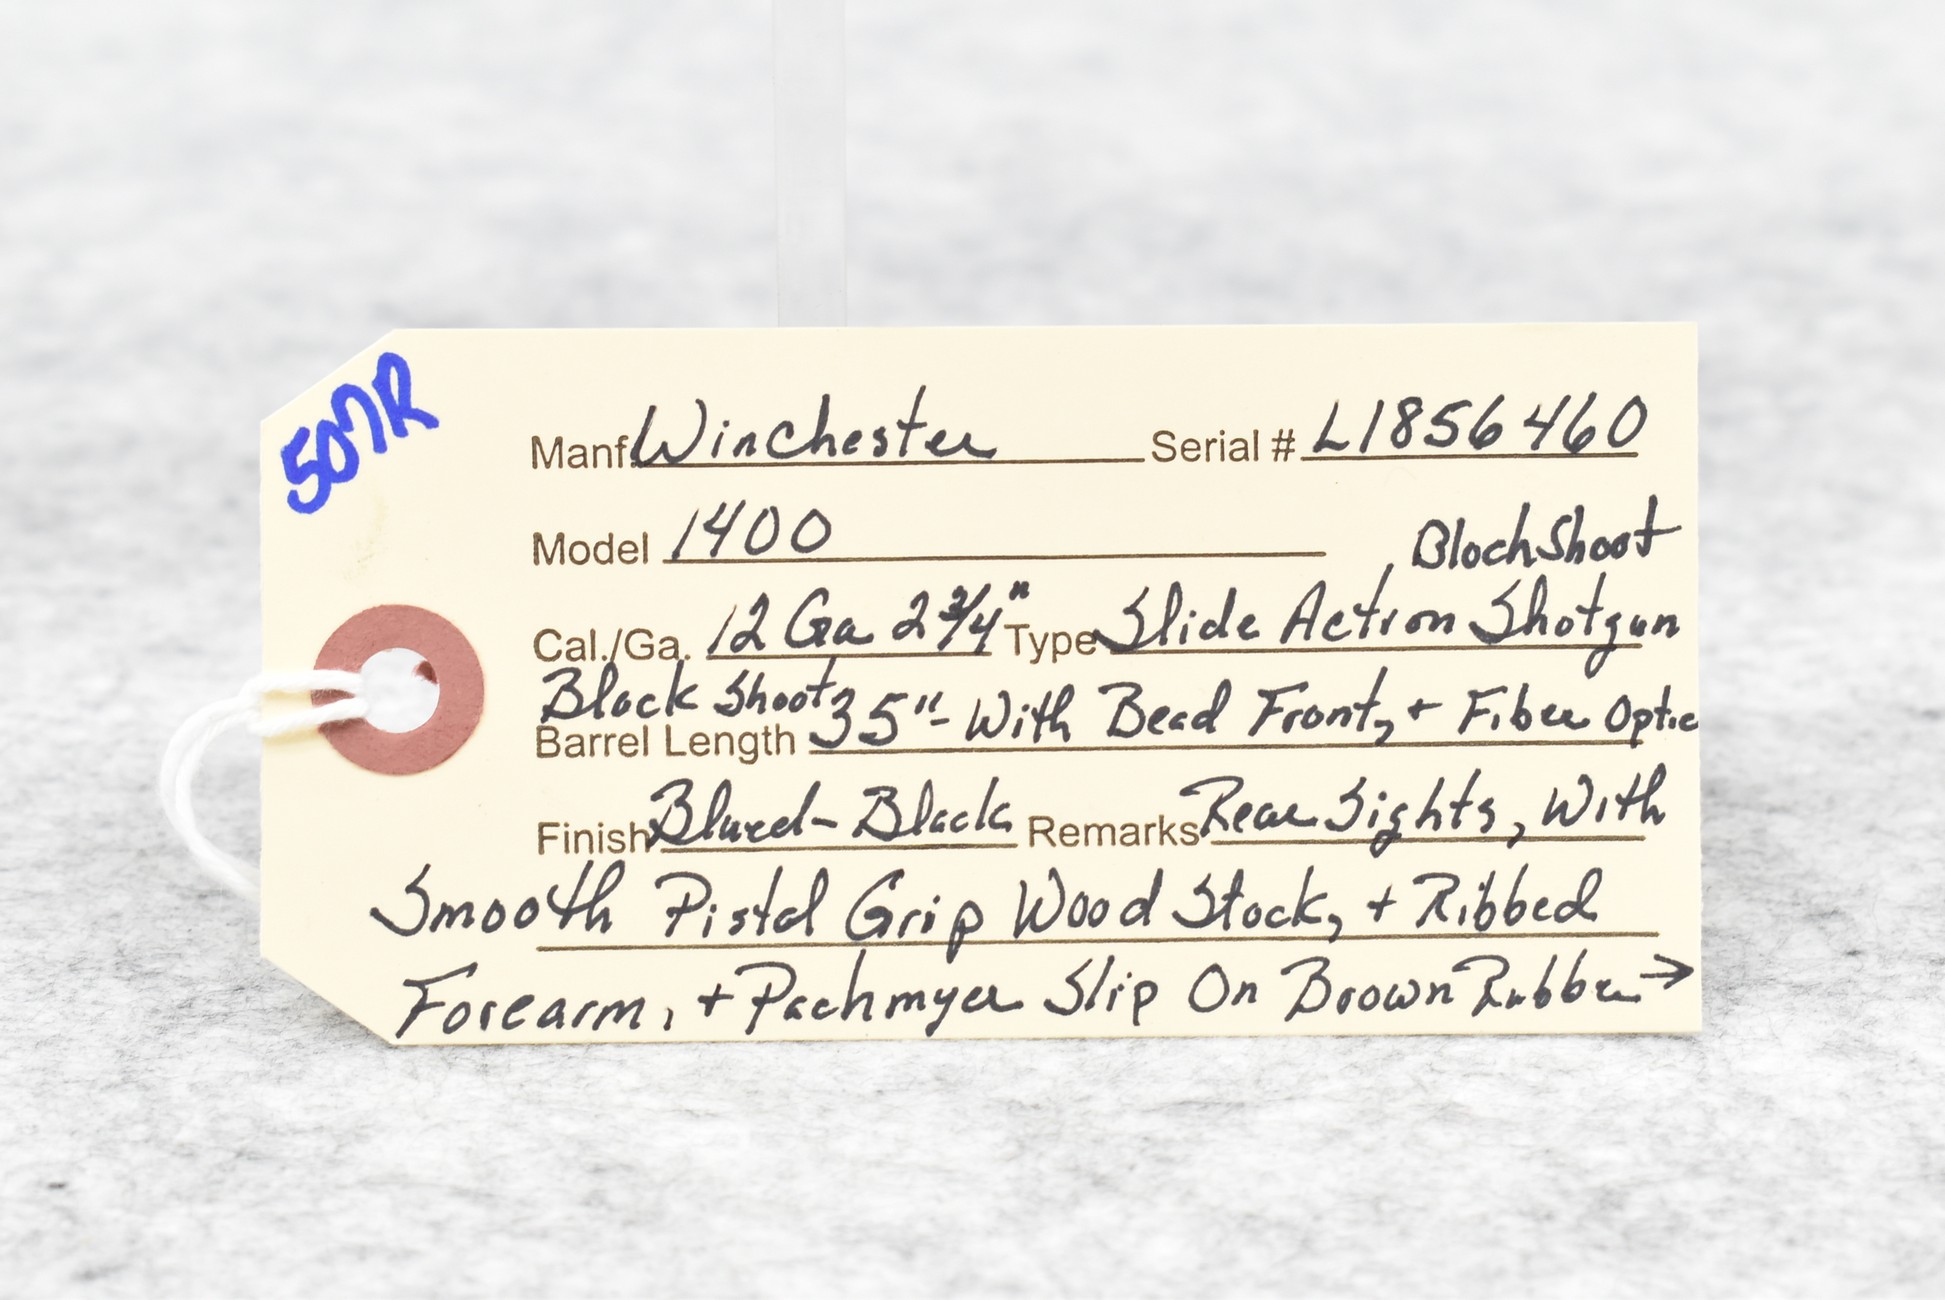 507R
Manf. Winchester Serial # L1856460
Model 1400 Block Shoot
Cal./Ga. 12 Ga 2 3/4" Type Slide Action Shotgun
Block Shoot
Barrel Length 35"- With Bead Front, + Fiber Optic
Finish Blued-Black Remarks Rear Sights, With
Smooth Pistol Grip Wood Stock, + Ribbed
Forearm, + Pachmyer Slip On Brown Rubber →